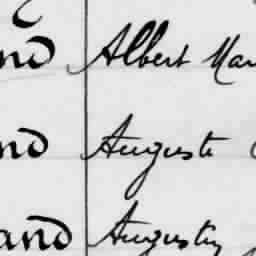 nd Albert Mar
nd Auguste
and Augustin